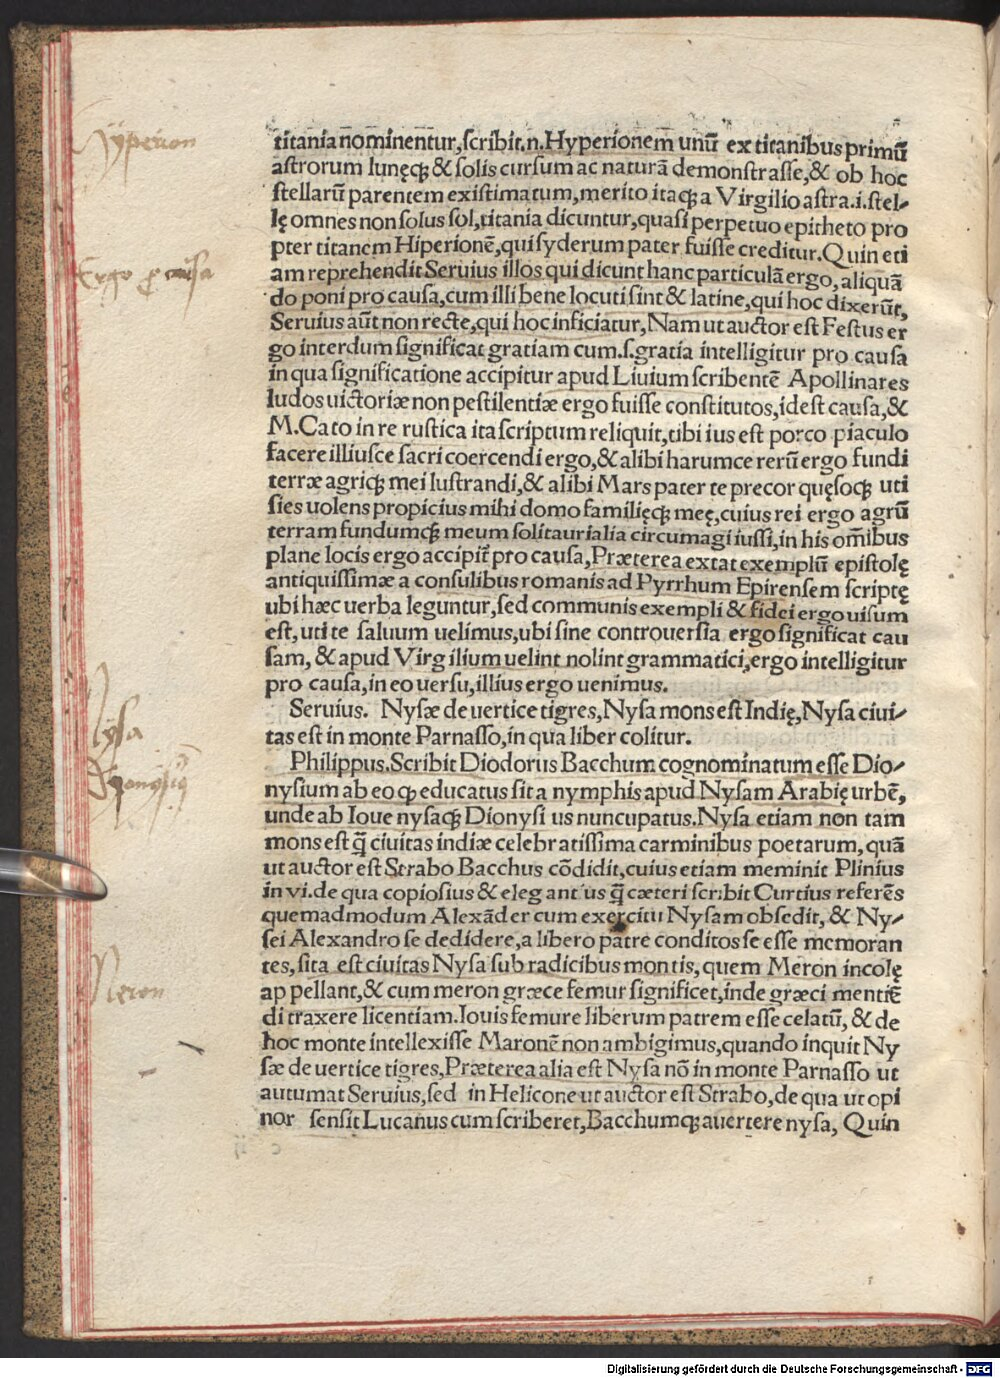 Hyperion
titania nominentur,scribit.n.Hyperionem unū ex titanibus primū
astrorum lunęq; & solis cursum ac naturā demonstrasse,& ob hoc
stellarū parentem existimatum,merito itaq; a Virgilio astra.i.stel-
lę omnes non solus sol,titania dicuntur,quasi perpetuo epitheto pro
pter titanem Hiperionē,qui syderum pater fuisse creditur.Quin eti
Ergo pro causa
am reprehendit Seruius illos qui dicunt hanc particulā ergo,aliquā
do poni pro causa,cum illi bene locuti sint & latine,qui hoc dixerūt,
Seruius aūt non recte,qui hoc inficiatur,Nam ut auctor est Festus er
go interdum significat gratiam cum.s.gratia intelligitur pro causa
in qua significatione accipitur apud Liuium scribentē Apollinares
ludos uictoriæ non pestilentiæ ergo fuisse constitutos,idest causa,&
M.Cato in re rustica ita scriptum reliquit,tibi ius est porco piaculo
facere illiusce sacri coercendi ergo,& alibi harumce rerū ergo fundi
terræ agriq; mei lustrandi,& alibi Mars pater te precor quęsoq; uti
sies uolens propicius mihi domo familięq; meę,cuius rei ergo agrū
terram fundumq; meum solitaurialia circumagi iussi,in his om̄ibus
plane locis ergo accipit̄ pro causa,Præterea extat exemplū epistolę
antiquissimæ a consulibus romanis ad Pyrrhum Epirensem scriptę
ubi hæc uerba leguntur,sed communis exempli & fidei ergo uisum
est,uti te saluum uelimus,ubi sine controuersia ergo significat cau
sam,& apud Virgilium uelint nolint grammatici,ergo intelligitur
pro causa,in eo uersu,illius ergo uenimus.
Nysa
Seruius. Nysæ de uertice tigres,Nysa mons est Indię,Nysa ciui-
tas est in monte Parnasso,in qua liber colitur.
Philippus.Scribit Diodorus Bacchum cognominatum esse Dio-
nysium ab eo q; educatus sit a nymphis apud Nysam Arabię urbē,
unde ab Ioue nysaq; Dionysius nuncupatus.Nysa etiam non tam
mons est q̄ ciuitas indiæ celebratissima carminibus poetarum,quā
ut auctor est Strabo Bacchus cōdidit,cuius etiam meminit Plinius
in vi.de qua copiosius & elegantius q̄ cæteri scribit Curtius referēs
quemadmodum Alexāder cum exercitu Nysam obsedit, & Ny-
sei Alexandro se dedidere,a libero patre conditos se esse memoran
Meron
tes,sita est ciuitas Nysa sub radicibus montis,quem Meron incolę
appellant,& cum meron græce femur significet,inde græci mentiē
di traxere licentiam.Iouis femure liberum patrem esse celatū, & de
hoc monte intellexisse Maronē non ambigimus,quando inquit Ny
sæ de uertice tigres,Præterea alia est Nysa nō in monte Parnasso ut
autumat Seruius,sed in Helicone ut auctor est Strabo,de qua ut opi
nor sensit Lucanus cum scriberet,Bacchumq; auertere nysa, Quin
Digitalisierung gefördert durch die Deutsche Forschungsgemeinschaft - DFG